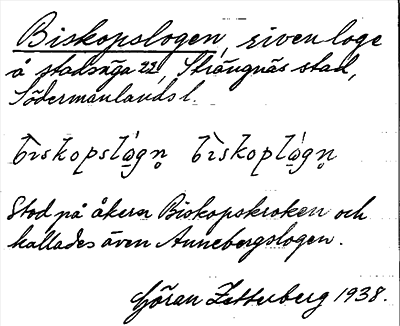 Biskopslogen, riven loge
å stadsäga 22, Strängnäs stad,
Södermanlands l.
bìskopslǫ́gn̥ bìskoplǫ̀gn̥
Stod på åkern Biskopskroken och
kallades även Annebergslogen.
Göran Zetterberg 1938.